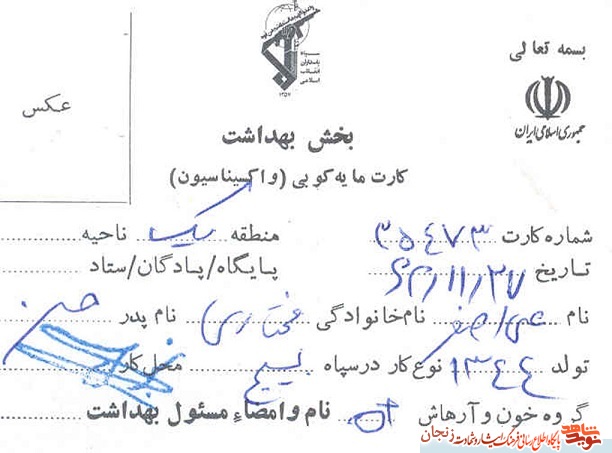 بسمه تعالی
جمهوری اسلامی ایران
سپاه
پاسداران
انقلاب
اسلامی
۱۳۵۷
عکس
بخش بهداشت
کارت مایه کوبی (واکسیناسیون)
شماره کارت ۳۵۴۷۳ منطقه یک ناحیه
تاریخ ۶۲/۱۱/۲۷ پایگاه/پادگان/ستاد
نام علی اصغر نام خانوادگی مختاری نام پدر حسن
تولد ۱۳۴۴ نوع کار در سپاه بسیج محل کار
گروه خون و آرهاش O نام و امضاء مسئول بهداشت
نوید شاهد پایگاه اطلاع رسانی فرهنگ ایثار و شهادت زنجان